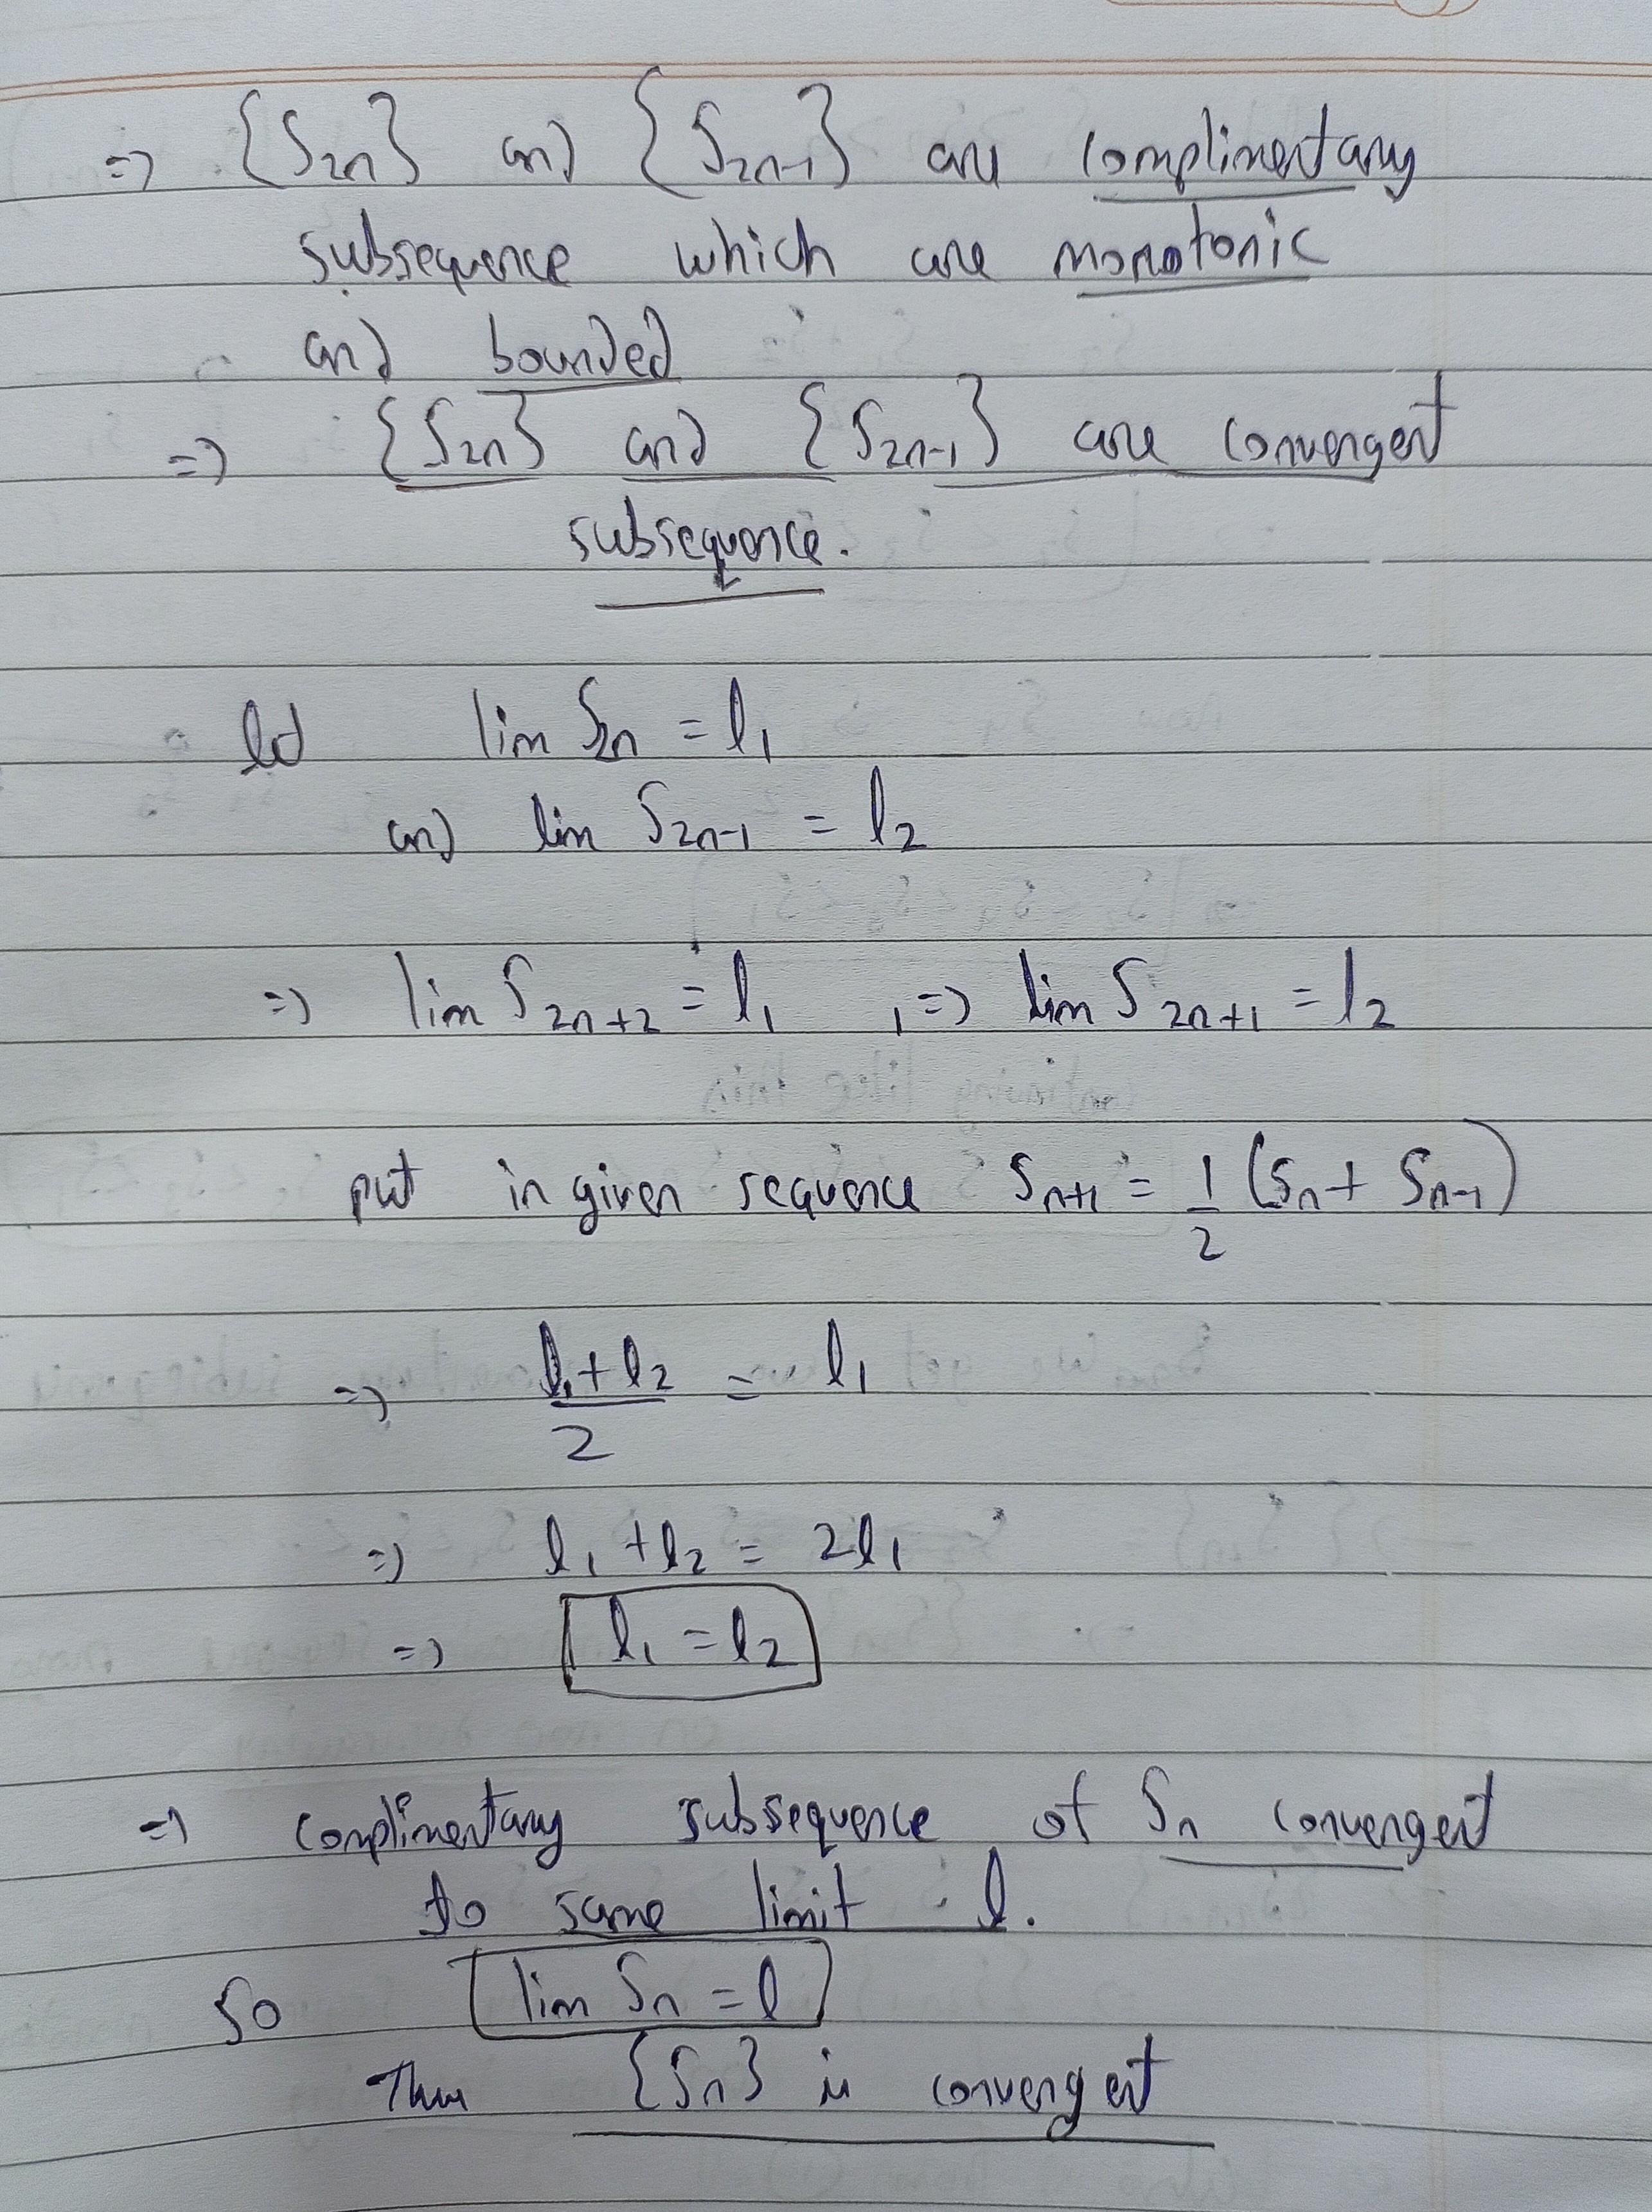 => {S2n} and {S2n-1} are complimentary
subsequence which are monotonic
and bounded
=> {S2n} and {S2n-1} are convergent
subsequence.
let lim S2n = l1
and lim S2n-1 = l2
=> lim S2n+2 = l1 , => lim S2n+1 = l2
put in given sequence Sn+1 = 1/2 (Sn + Sn-1)
=> (l1 + l2)/2 = l1
=> l1 + l2 = 2l1
=> l1 = l2
=> complimentary subsequence of Sn convergent
to same limit l.
So lim Sn = l
Thus {Sn} is convergent